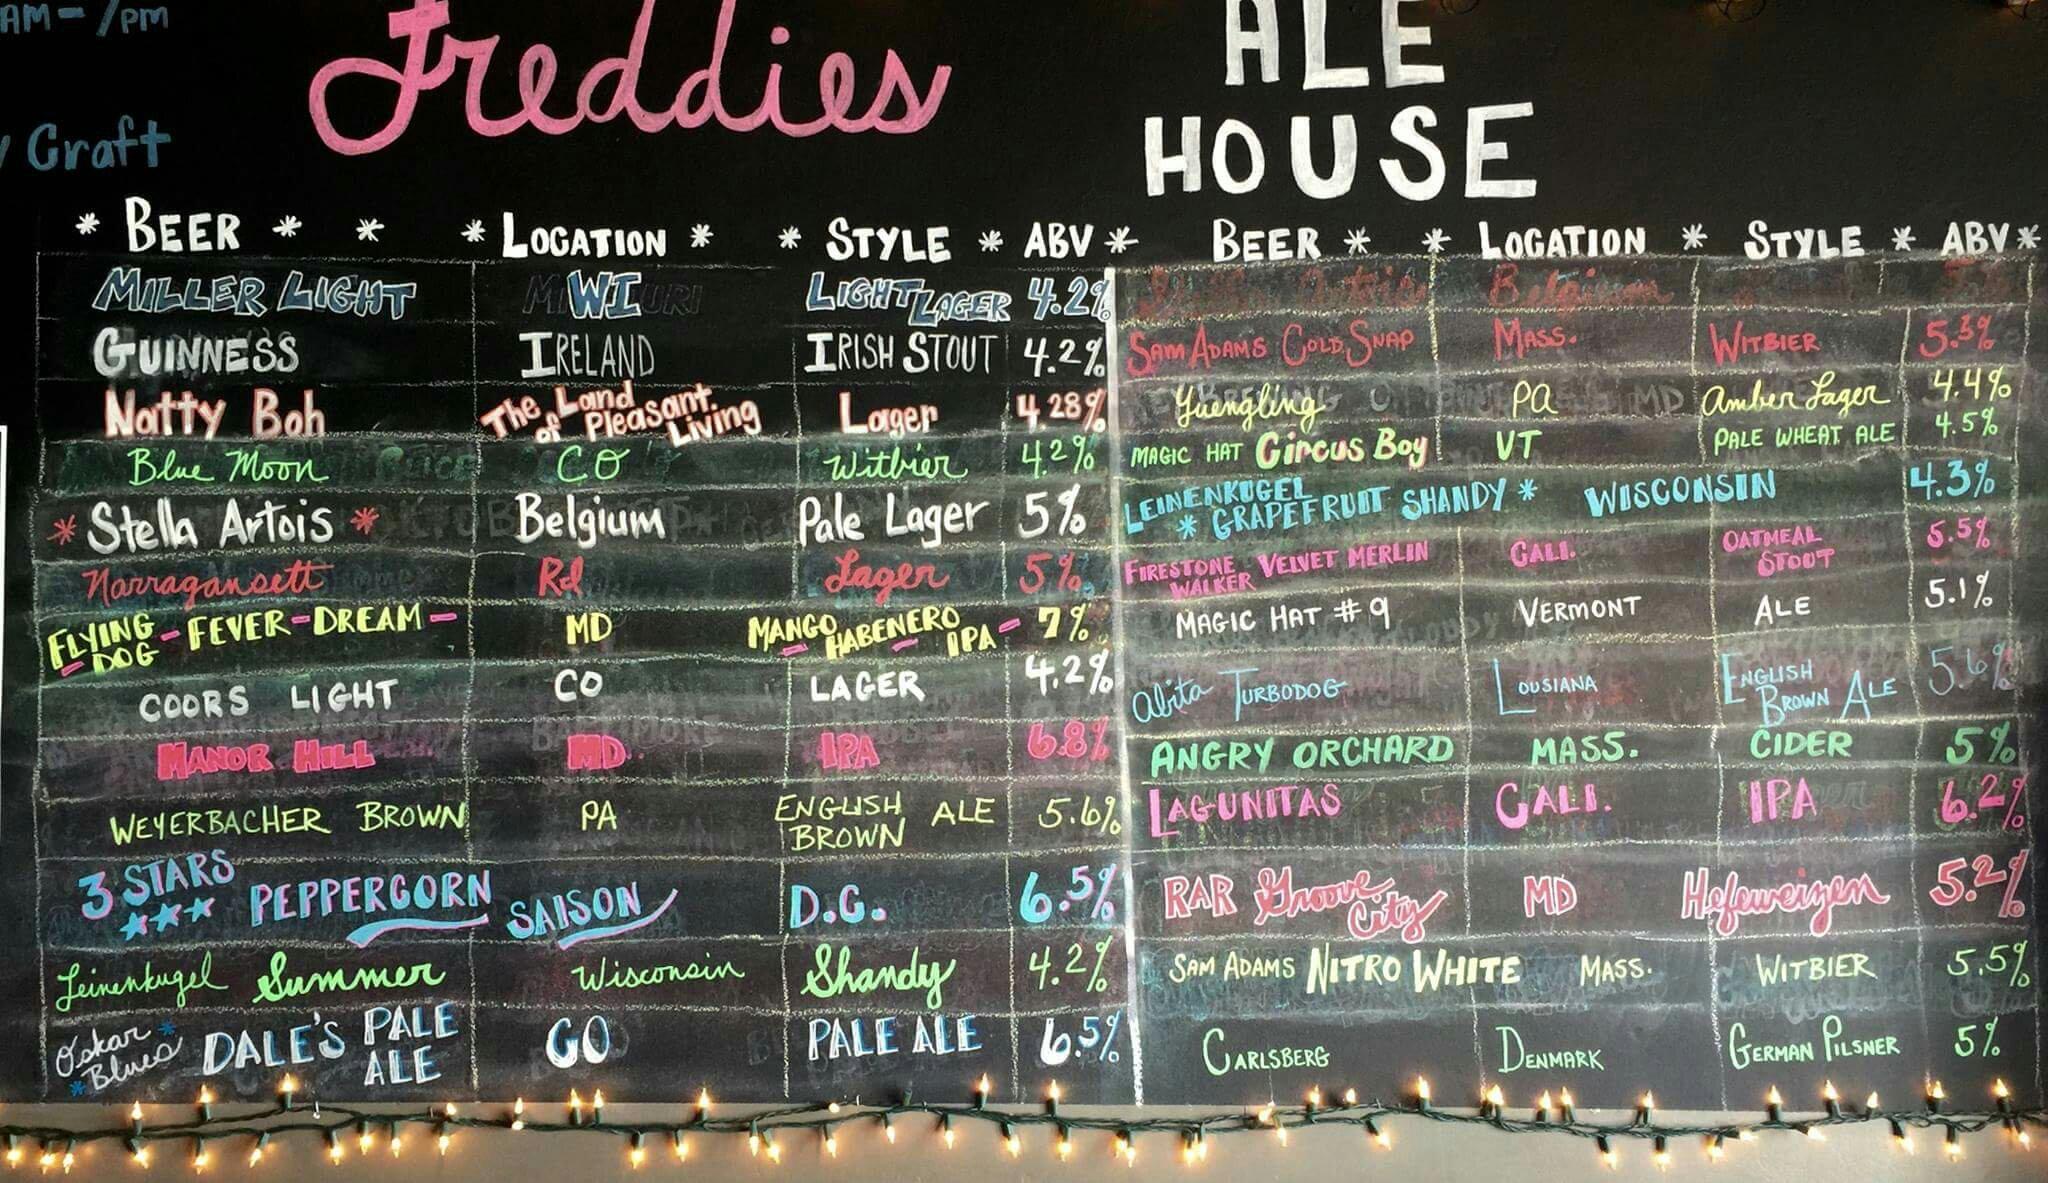 AM-7PM
Craft
Freddies
ALE
HOUSE
* BEER * * * LOCATION * * STYLE * ABV *
MILLER LIGHT WI LIGHT LAGER 4.2%
GUINNESS IRELAND IRISH STOUT 4.2%
Natty Boh The Land of Pleasant Living Lager 4.28%
Blue Moon CO Witbier 4.2%
* Stella Artois * Belgium Pale Lager 5%
Narragansett RI Lager 5%
FLYING DOG - FEVER - DREAM - MD MANGO HABENERO IPA - 7%
COORS LIGHT CO LAGER 4.2%
MANOR HILL MD IPA 6.8%
WEYERBACHER BROWN PA ENGLISH BROWN ALE 5.6%
3 STARS *** PEPPERCORN SAISON D.C. 6.5%
Leinenkugel Summer Wisconsin Shandy 4.2%
Oskar * Blues * DALE'S PALE ALE CO PALE ALE 6.5%
BEER * * LOCATION * STYLE * ABV *
SAM ADAMS COLD SNAP MASS. WITBIER 5.3%
Yuengling PA Amber Lager 4.4%
MAGIC HAT Circus Boy VT PALE WHEAT ALE 4.5%
LEINENKUGEL * GRAPEFRUIT SHANDY * WISCONSIN 4.3%
FIRESTONE WALKER VELVET MERLIN CALI. OATMEAL STOUT 5.5%
MAGIC HAT #9 VERMONT ALE 5.1%
Abita TURBODOG LOUSIANA ENGLISH BROWN ALE 5.6%
ANGRY ORCHARD MASS. CIDER 5%
LAGUNITAS CALI. IPA 6.2%
RAR Groove City MD Hefeweizen 5.2%
SAM ADAMS NITRO WHITE MASS. WITBIER 5.5%
CARLSBERG DENMARK GERMAN PILSNER 5%